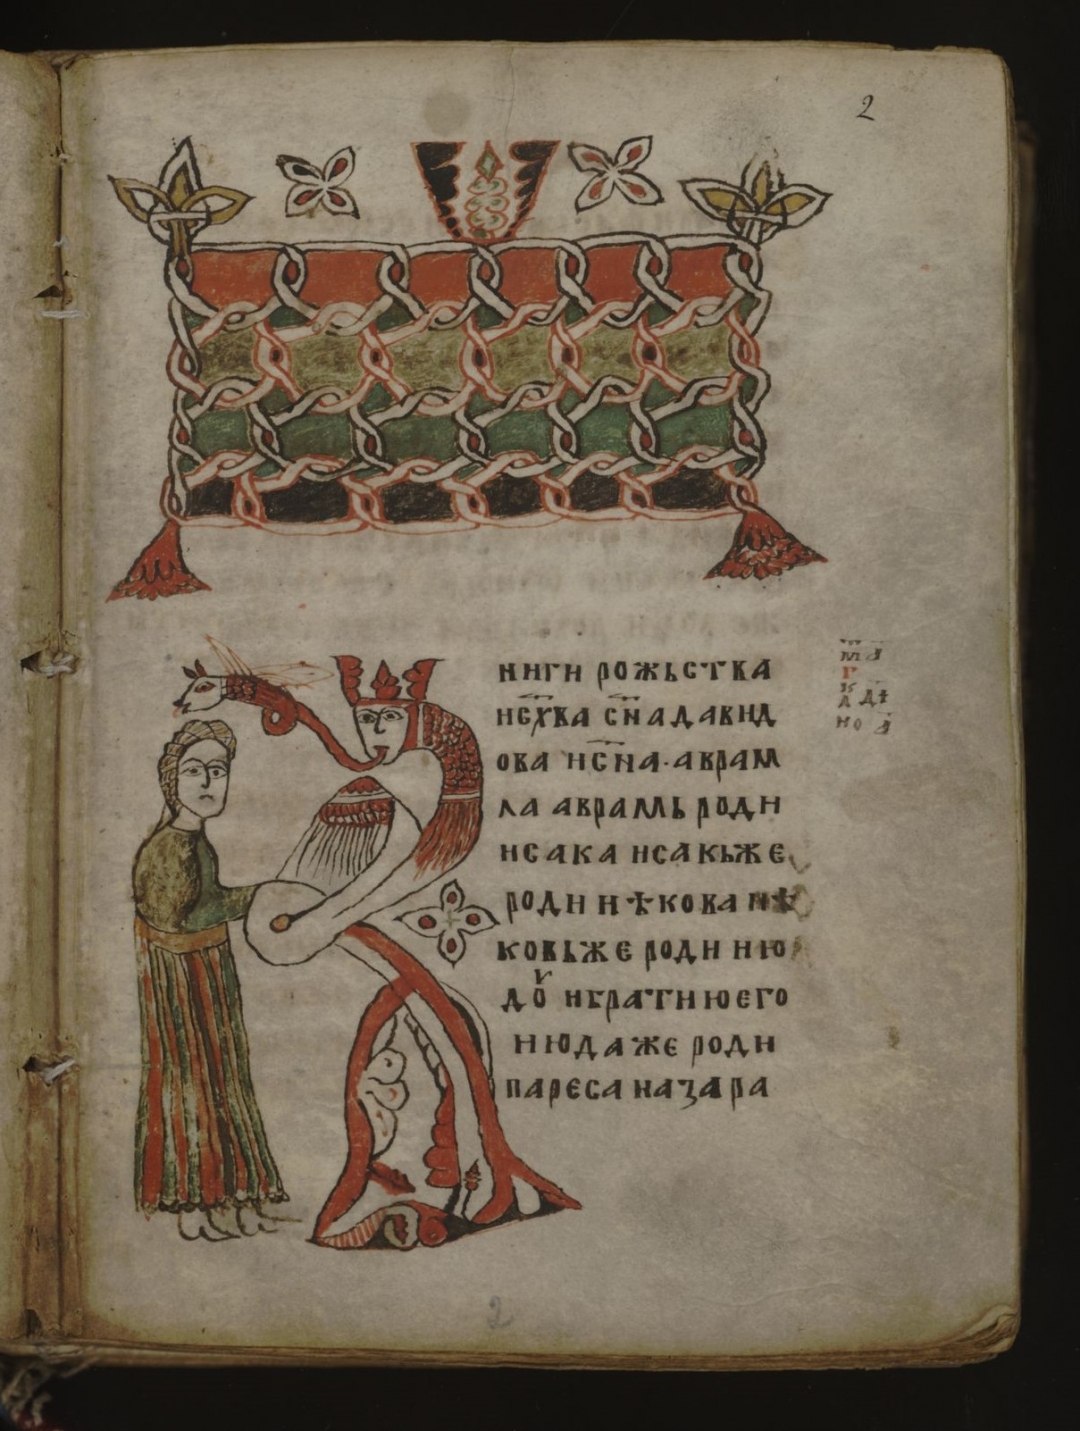 2
ниги рожьства
исх҃ва сн҃а давид
ова · исн҃а · аврам
ла авраамь роди
исака исакьже
роди иѣкова иѣ
ковьже роди ию
доу ибратиюего
июдаже роди
пареса иазара
2